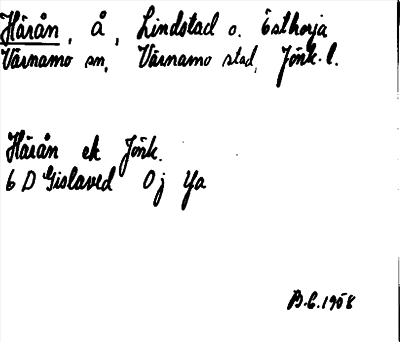 Härån, å, Lindstad o. Östhorja
Värnamo sn, Värnamo stad, Jönk. l.
Härån ek Jönk.
6 D Gislaved 0 j Ya
B.E. 1958